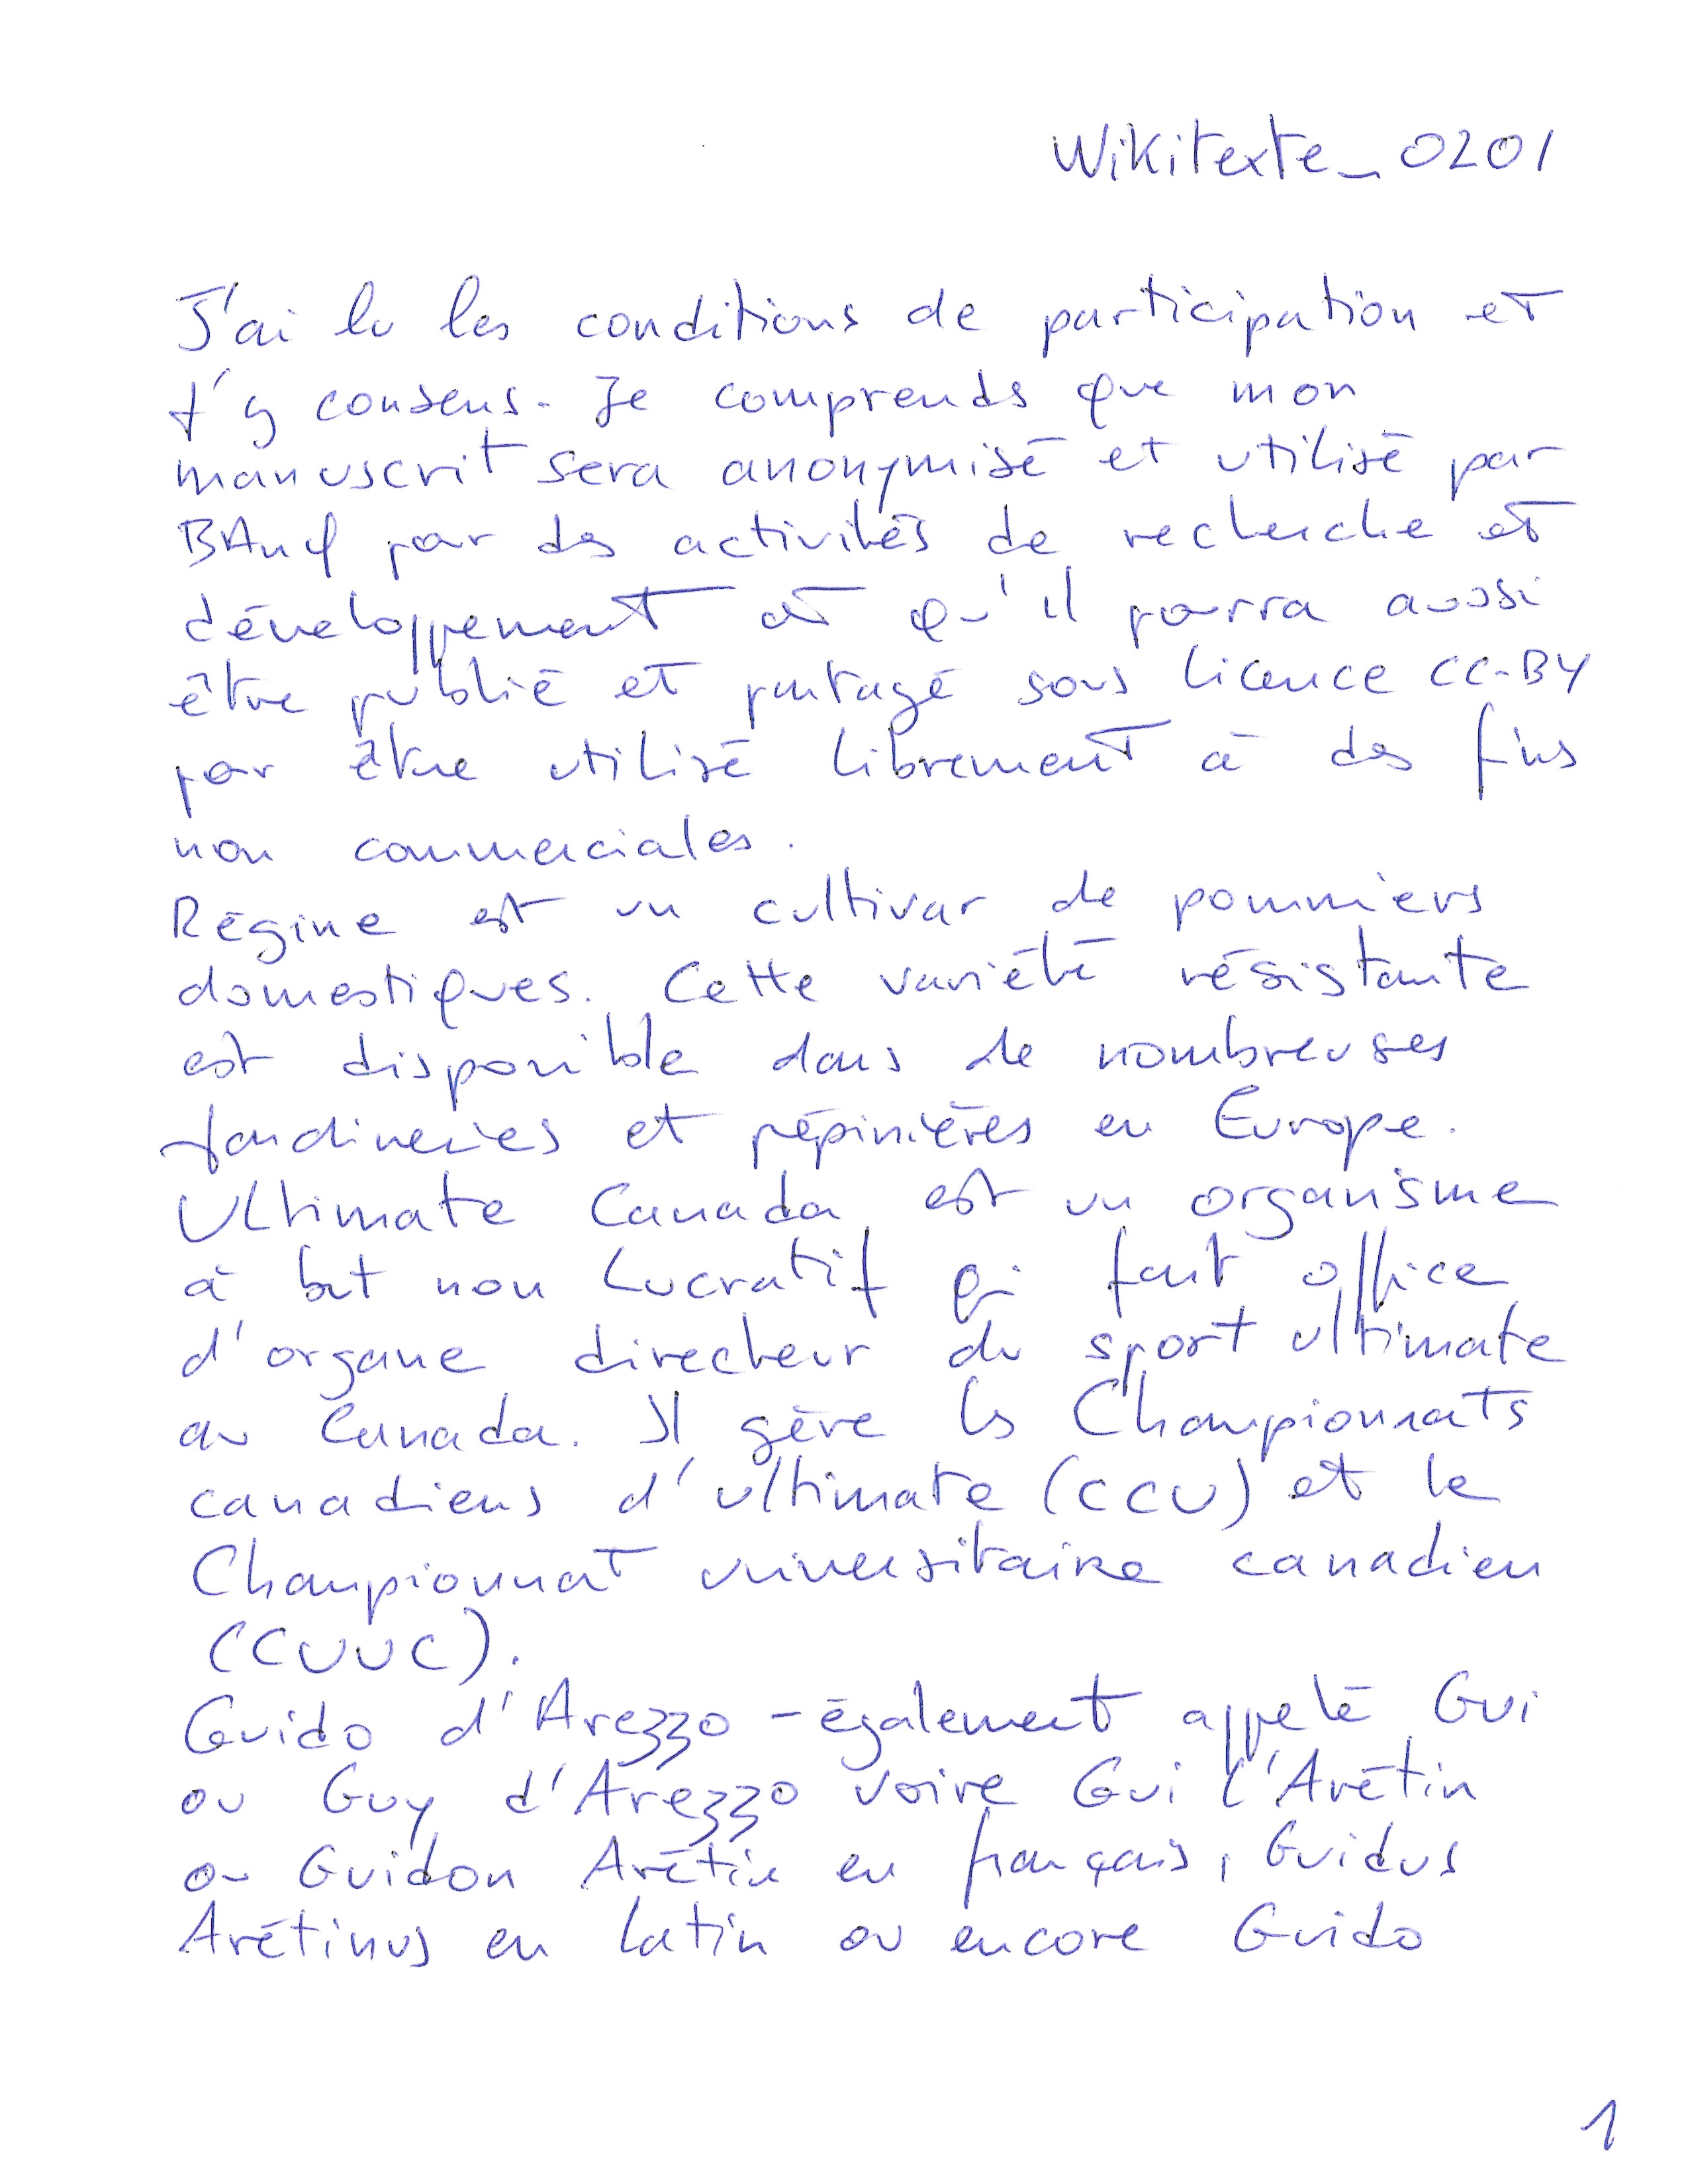 Wikitexte_0201
J'ai lu les conditions de participation et
j'y consens. Je comprends que mon
manuscrit sera anonymisé et utilisé par
BAnQ pour des activités de recherche et
développement et qu'il pourra aussi
être publié et partagé sous licence CC-BY
pour être utilisé librement à des fins
non commerciales.
Régine est un cultivar de pommiers
domestiques. Cette variété résistante
est disponible dans de nombreuses
jardineries et pépinières en Europe.
Ultimate Canada est un organisme
à but non lucratif qui fait office
d'organe directeur du sport ultimate
au Canada. Il gère les Championnats
canadiens d'ultimate (CCU) et le
Championnat universitaire canadien
(CCUUC).
Guido d'Arezzo - également appelé Gui
ou Guy d'Arezzo voire Gui l'Arétin
ou Guidon Arétin en français, Guidus
Arétinus en latin ou encore Guido
1